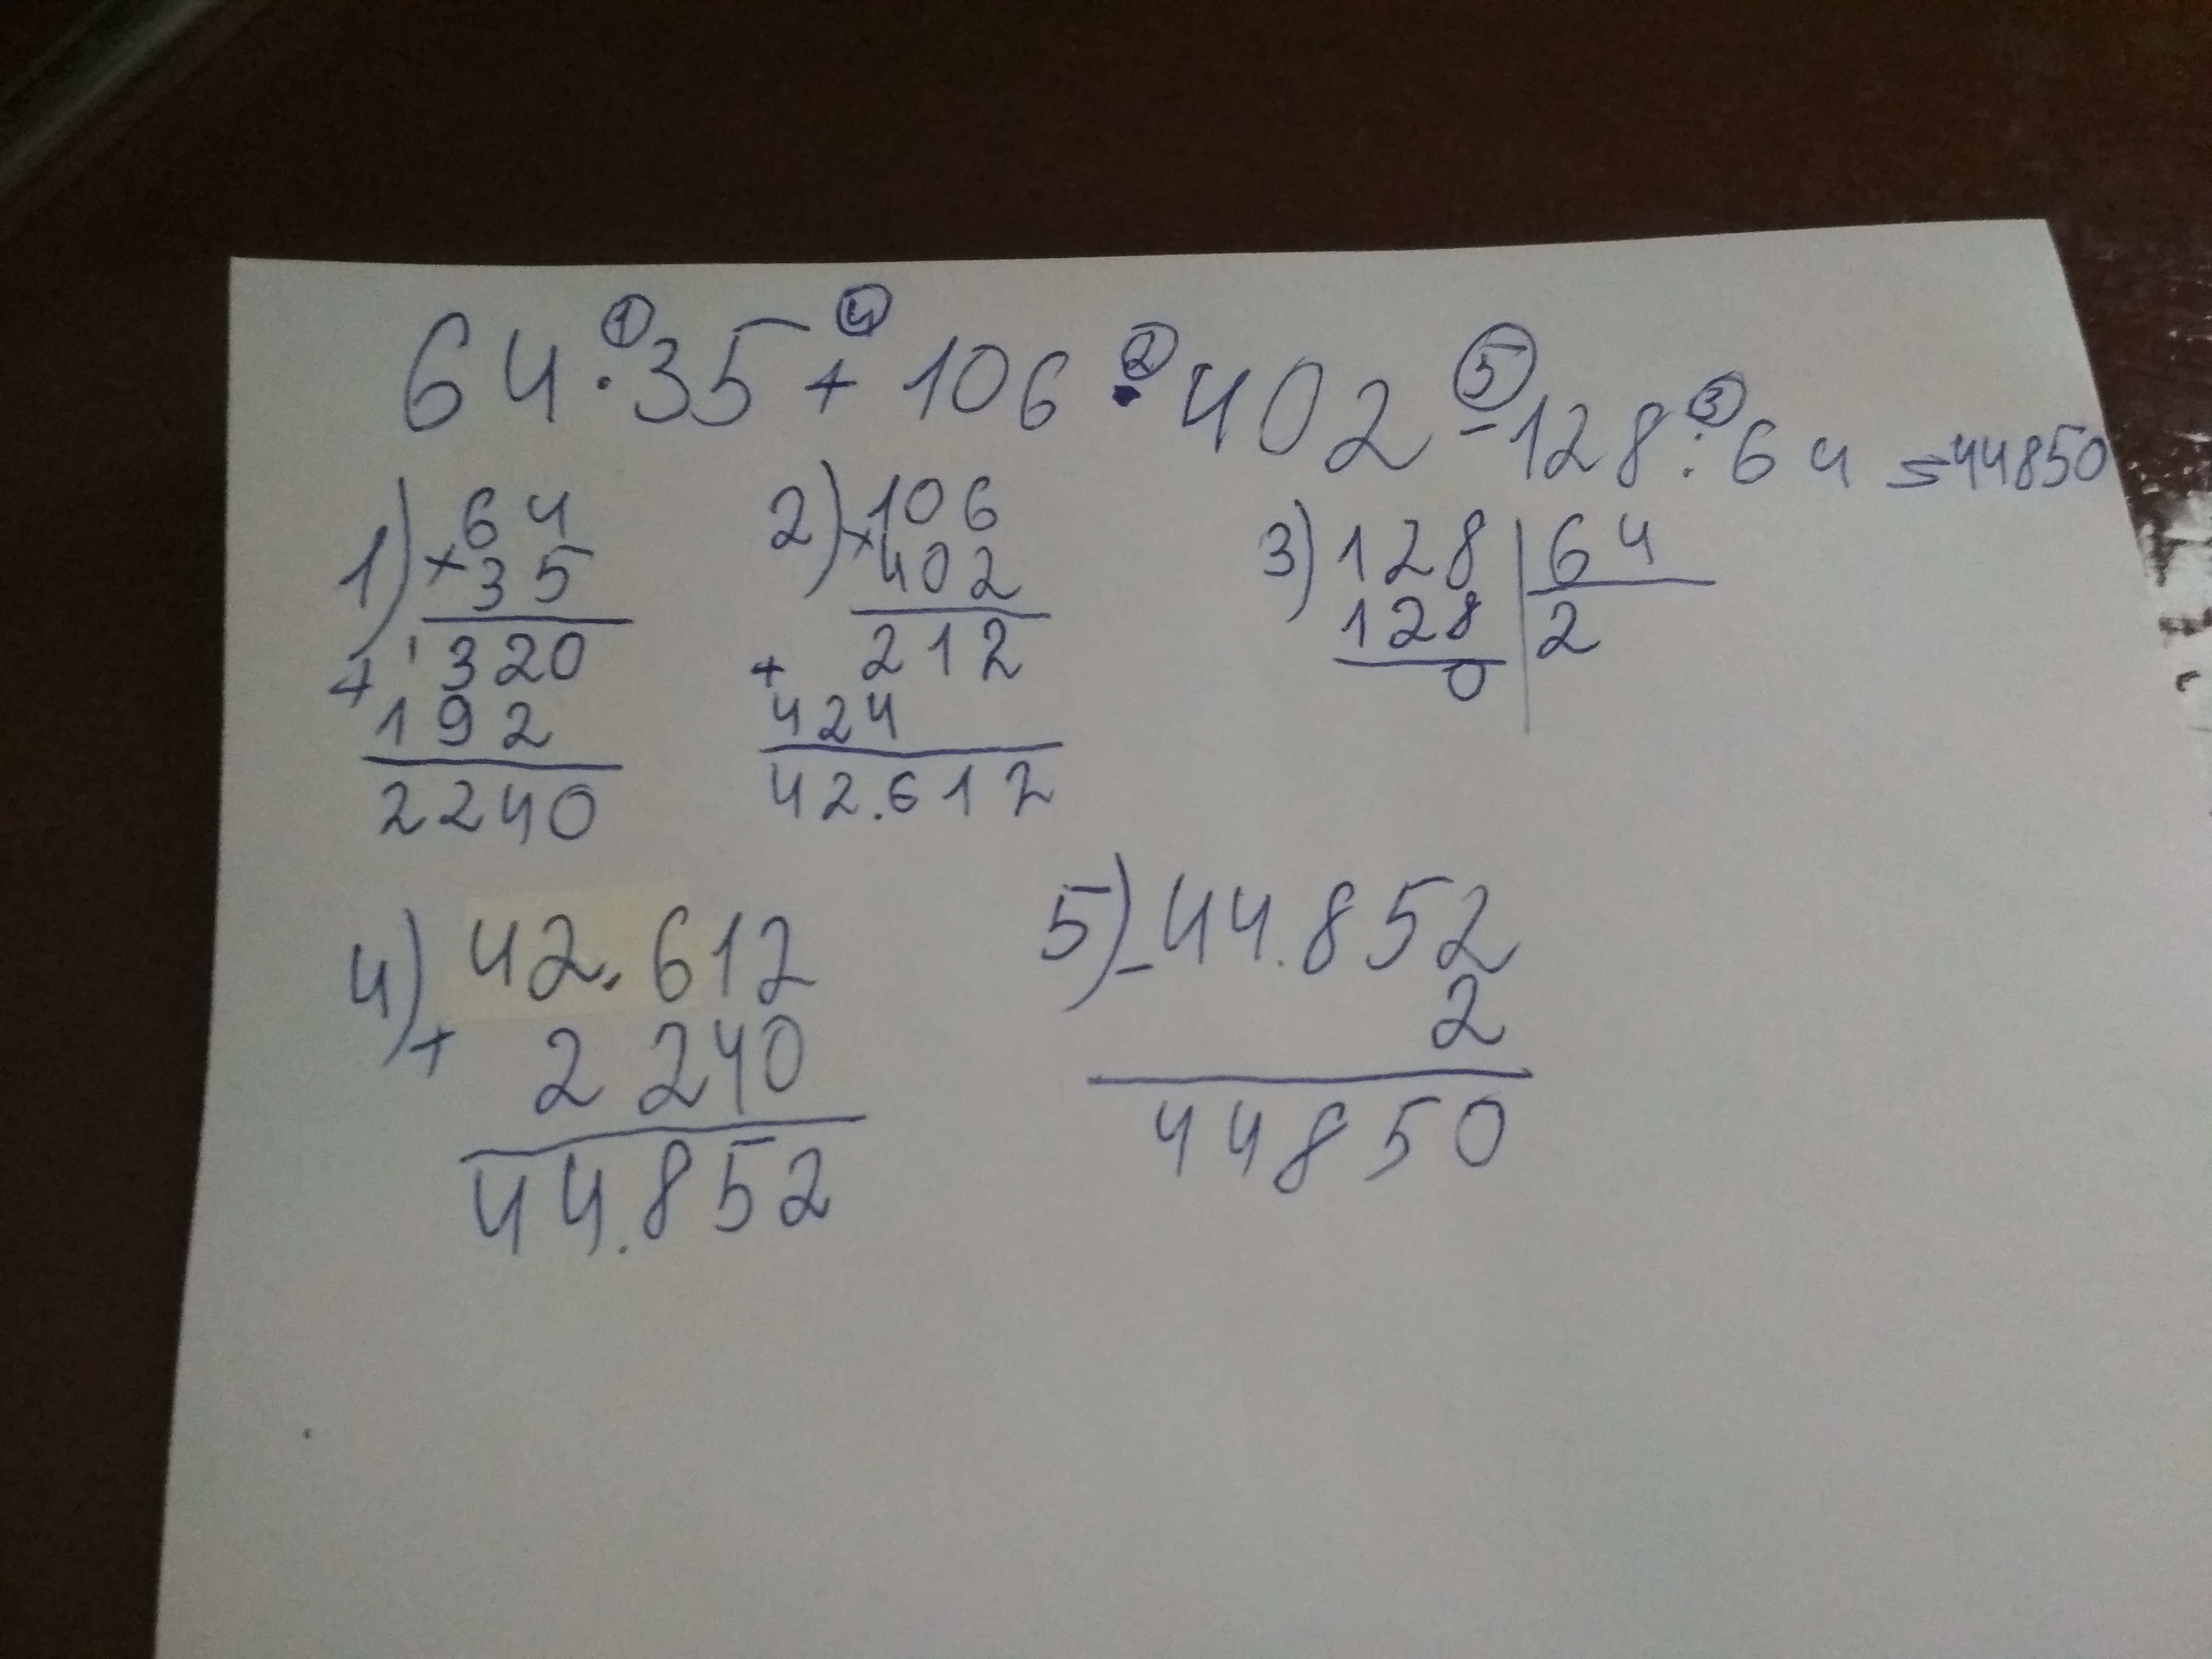 64·①35+④106·②402-⑤128:③64=44850
1) ×64
35
+ ¹320
192
2240
2) ×106
402
+ 212
424
42.612
3) 128 | 64
128 | 2
0
4) 42.612
+ 2 240
44.852
5) -44.852
2
44850